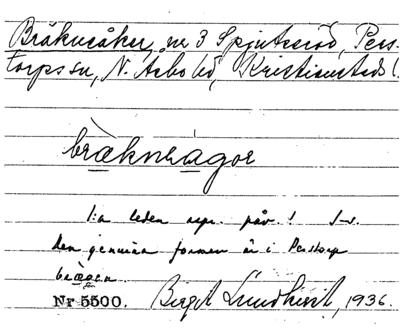 Bråkneåker, nr 3 Spjutseröd, Pers-
torps sn, N. Åsbo hd, Kristianstads l.
bràkneagor
1:a leden repr. påv. !
den genuina formen är i Perstorp
Nr 5500. Birgit Lundkvist, 1936.